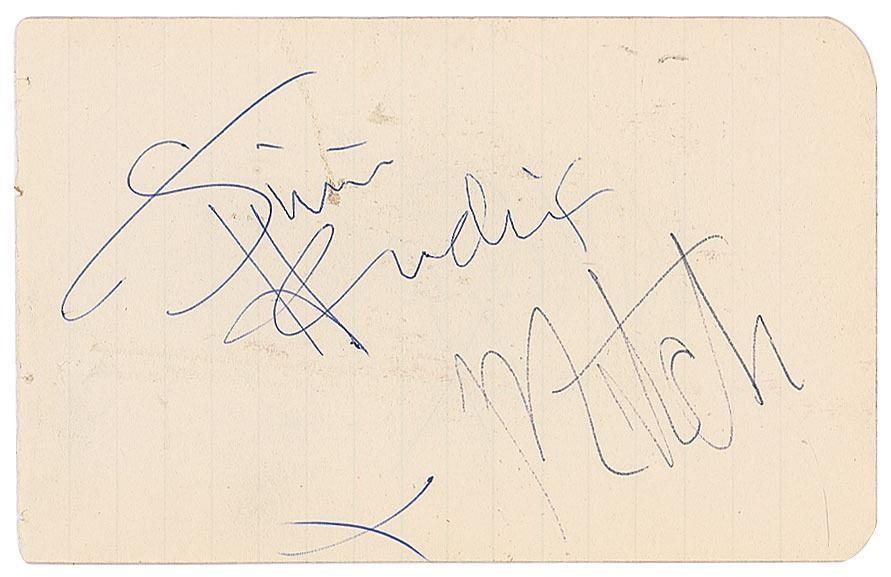 Jimi
Hendrix
Mitch